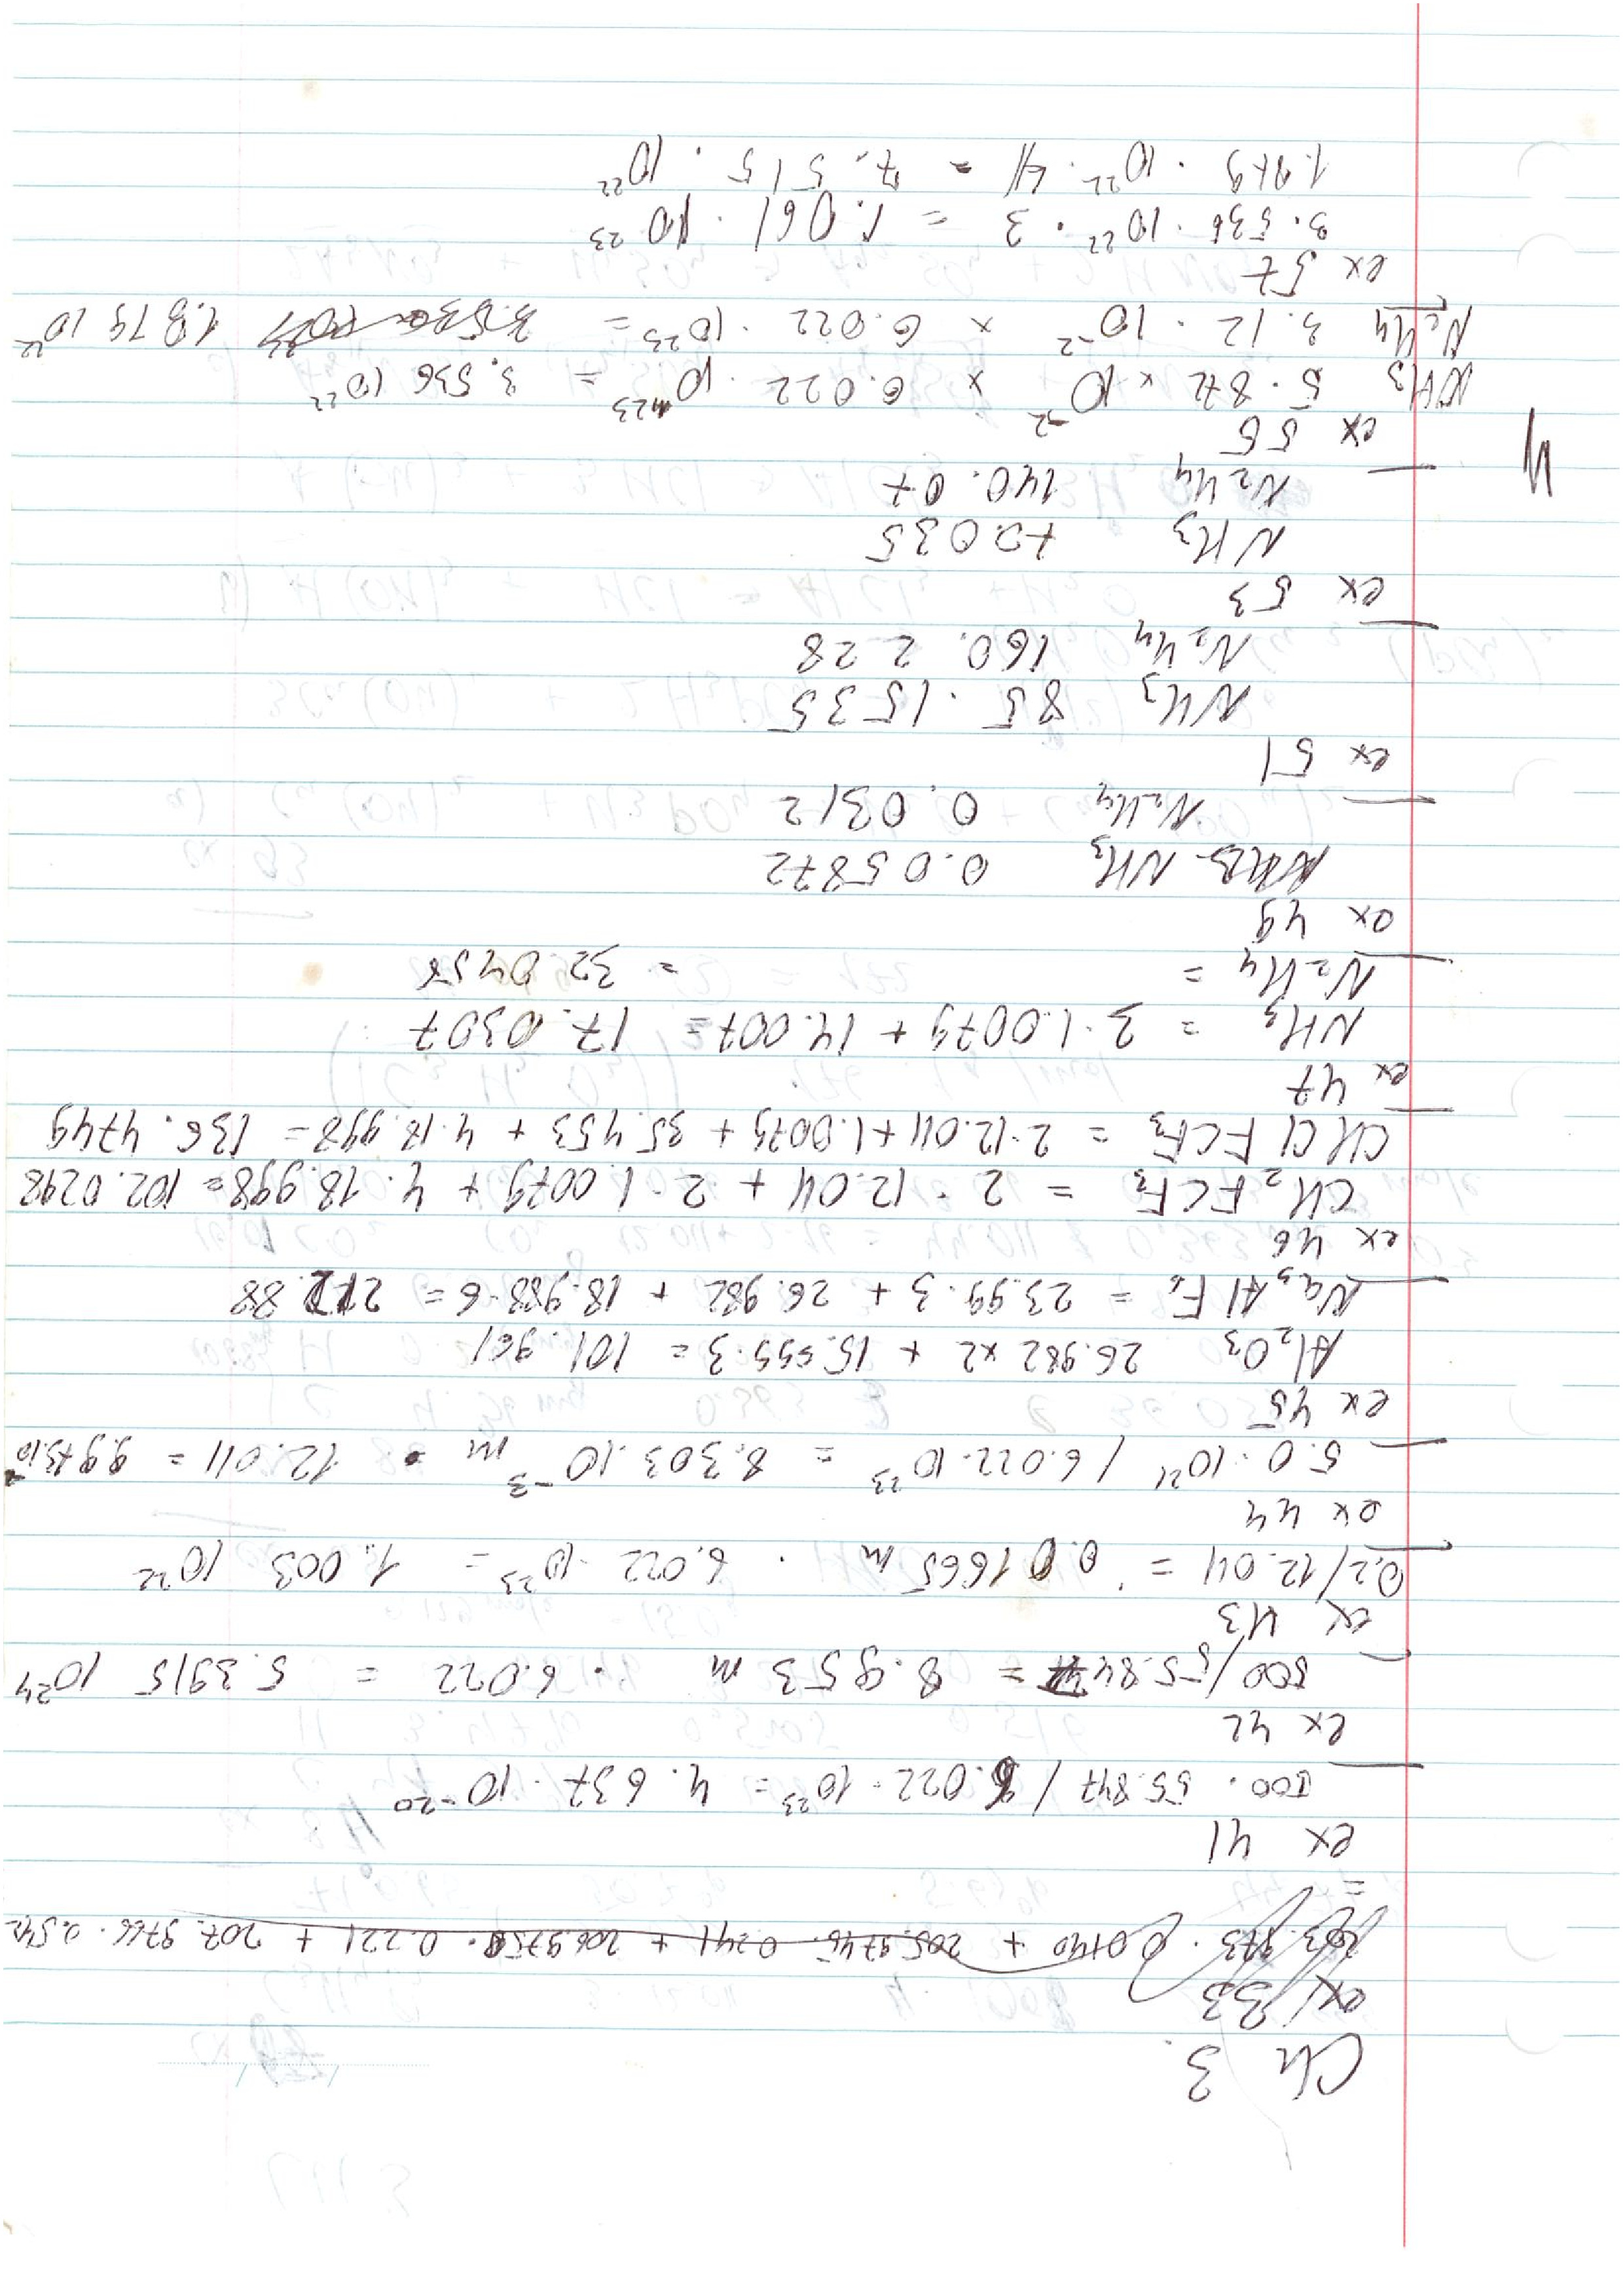 Ch 3.
ex 33
203.973 · 0.0140 + 205.9745 · 0.241 + 206.9758 · 0.221 + 207.9766 · 0.542
=
ex 41
500 · 55.847 / 6.022 · 10²³ = 4.637 · 10⁻²⁰
ex 42
500/55.847 = 8.953 m · 6.022 = 5.3915 10²⁴
ex 43
0.2/12.011 = 0.01665 m · 6.022 · 10²³ = 1.003 10²²
ex 44
5.0 · 10²¹ / 6.022 · 10²³ = 8.303 · 10⁻³ m · 12.011 = 9.973 · 10⁻²
ex 45
Al₂O₃ 26.982 x2 + 15.999 · 3 = 101.961
Na₃AlF₆ = 23.99 · 3 + 26.982 + 18.988 · 6 = 212.88
ex 46
CH₂FCF₃ = 2 · 12.011 + 2 · 1.0079 + 4 · 18.998 = 102.0298
CHClFCF₃ = 2 · 12.011 + 1.0079 + 35.453 + 4 · 18.998 = 136.4749
ex 47
NH₃ = 3 · 1.0079 + 14.007 = 17.0307
N₂H₄ = = 32.0458
ex 49
NH₃ 0.05872
N₂H₄ 0.0312
ex 51
NH₃ 85.1535
N₂H₄ 160.228
ex 53
NH₃ 70.035
N₂H₄ 140.07
ex 55
NH₃ 5.872 x 10⁻² x 6.022 · 10²³ = 3.536 10²²
N₂H₄ 3.12 · 10⁻² x 6.022 · 10²³ = 1.879 10²²
ex 57
3.536 · 10²² · 3 = 1.061 · 10²³
1.879 · 10²² · 4 = 7.515 · 10²²